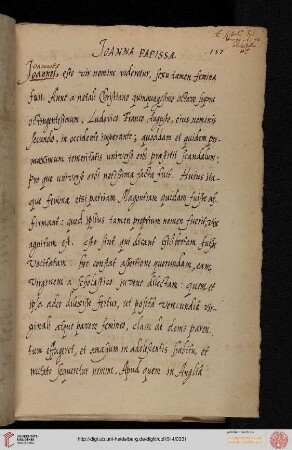 IOANNA PAPISSA.
157
Ioannes, esto vir nomine videretur, sexu tamen femina
fuit. Anno a natali Christiano quinquagesimo octavo supra
octingentesimum, Ludovico Franco Augusto, eius nominis
secundo, in occidenti imperante; quaedam et quidem per-
maximum temeritatis universo orbi praestitit scandalum;
pro quo universo orbi notissima facta fuit. Huius ita-
que femina etsi patriam Magontiam quidam fuisse af-
firmant: quod ipsius tamen proprium nomen fuerit, vix
cognitum est. esto sint qui dicant Gilibertam fuisse
vocitatam. hoc constat assertione quorundam, eam
virginem a scholastico iuvene dilectam: quem et
ipsa adeo dilexisse fertur, ut posita verecundia vir-
ginali atque pavore femineo, clam de domo paren-
tum effugeret, et amasium in adolescentis habitu, et
mutato sequeretur nomine. Apud quem in Anglia
http://digi.ub.uni-heidelberg.de/diglit/cpl1914/0331